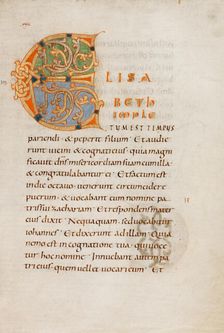 ELISA
BETh
imple
TUM EST TEMPUS
pariendi & peperit filium Et audie
runt vicini & cognati eius quia magni
ficavit dns misericordiam suam cum illa
& congratulabantur ei Et factum est
in die octavo venerunt circumcidere
puerum & vocabant eum nomine pa
tris sui zachariam Et respondens mater
eius dixit Nequaquam sed vocabitur
iohannes Et dixerunt ad illam Quia
nemo est in cognatione tua qui voce
tur hoc nomine Innuebant autem pa
tri eius quem vellet vocari eum Et